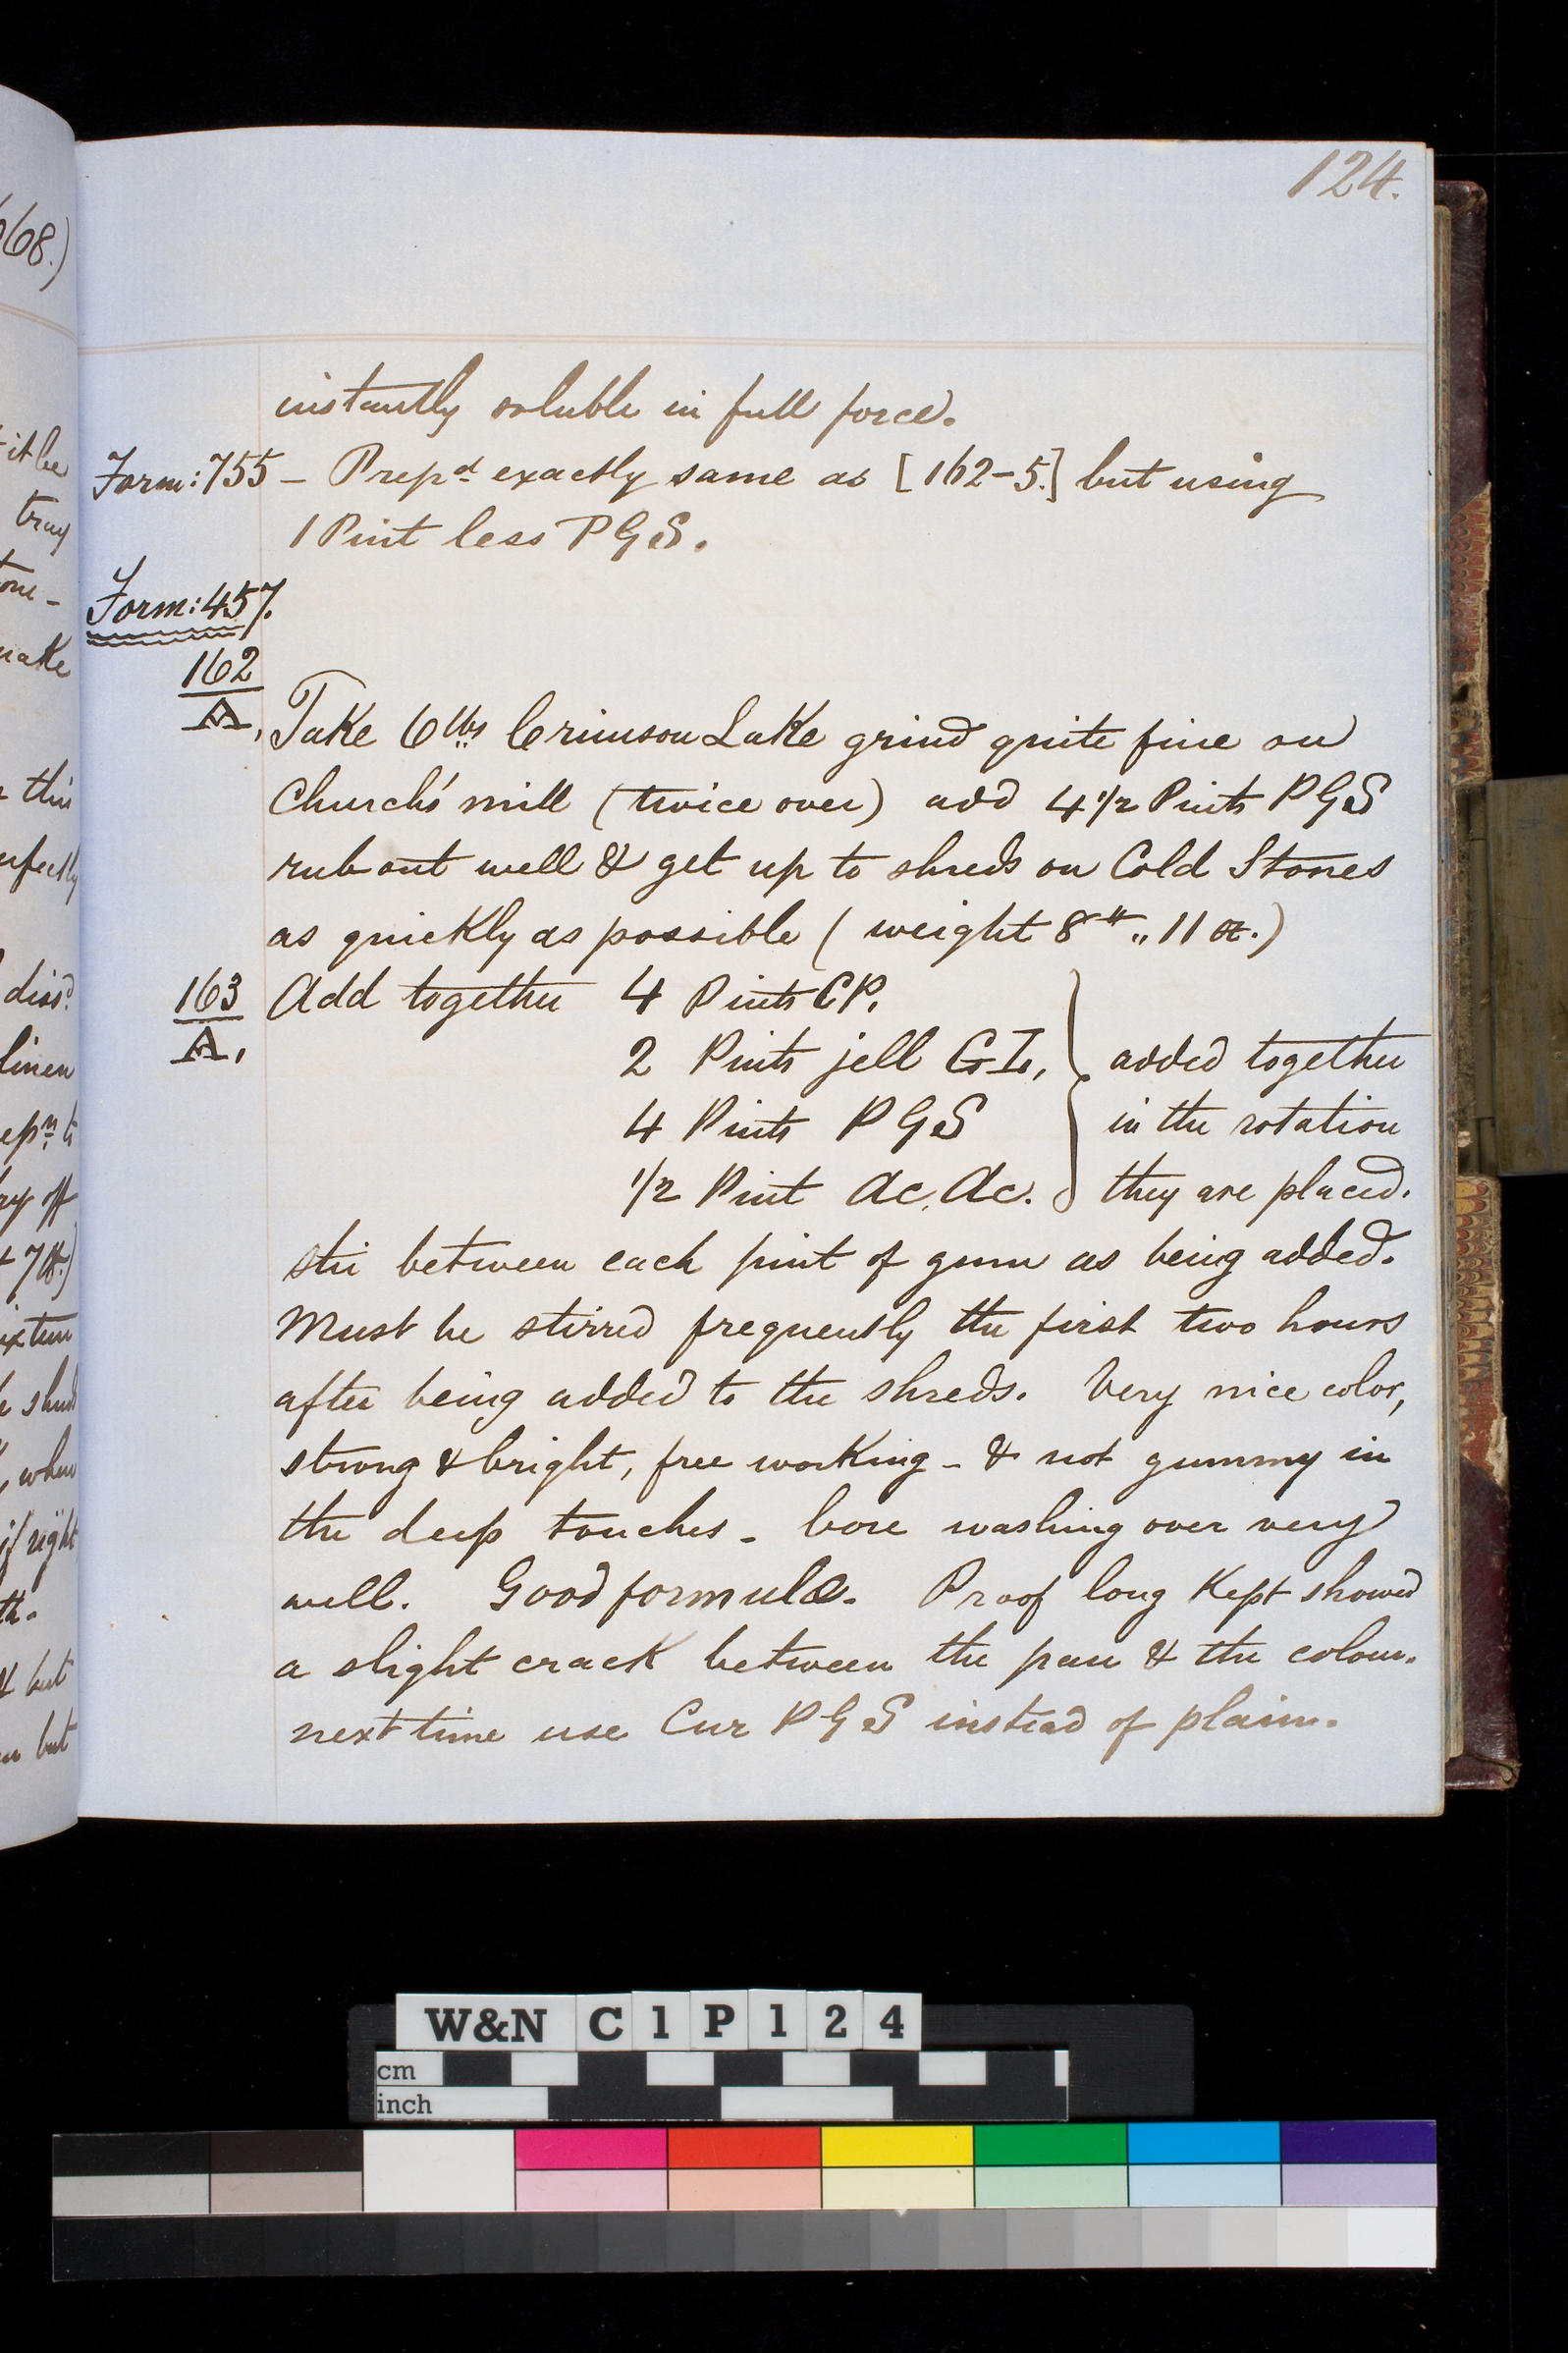 124.
668.)
instantly soluble in full force.
Form: 755 – Prepd exactly same as [162-5.] but using
1 Pint less PGS.
Form: 457.
162
A.
Take 6 lbs Crimson Lake grind quite fine on
Church's mill (twice over) add 4 1/2 Pints PGS
rub out well & get up to shreds on Cold Stones
as quickly as possible ( weight 8 lb ,, 11 oz.)
163
A.
Add together 4 Pints CP.
2 Pints jell GL, added together
4 Pints PGS in the rotation
1/2 Pint Ac. Ac. they are placed.
stir between each pint of gum as being added.
Must be stirred frequently the first two hours
after being added to the shreds. Very nice color,
strong & bright, free working – & not gummy in
the deep touches – bore washing over very
well. Good formula. Proof long kept showed
a slight crack between the pan & the colour.
next time use Cur PGS instead of plain.
it be
tray
make
this
diss.d
linen
when
if right
& but
but
W&N C1P124
cm
inch